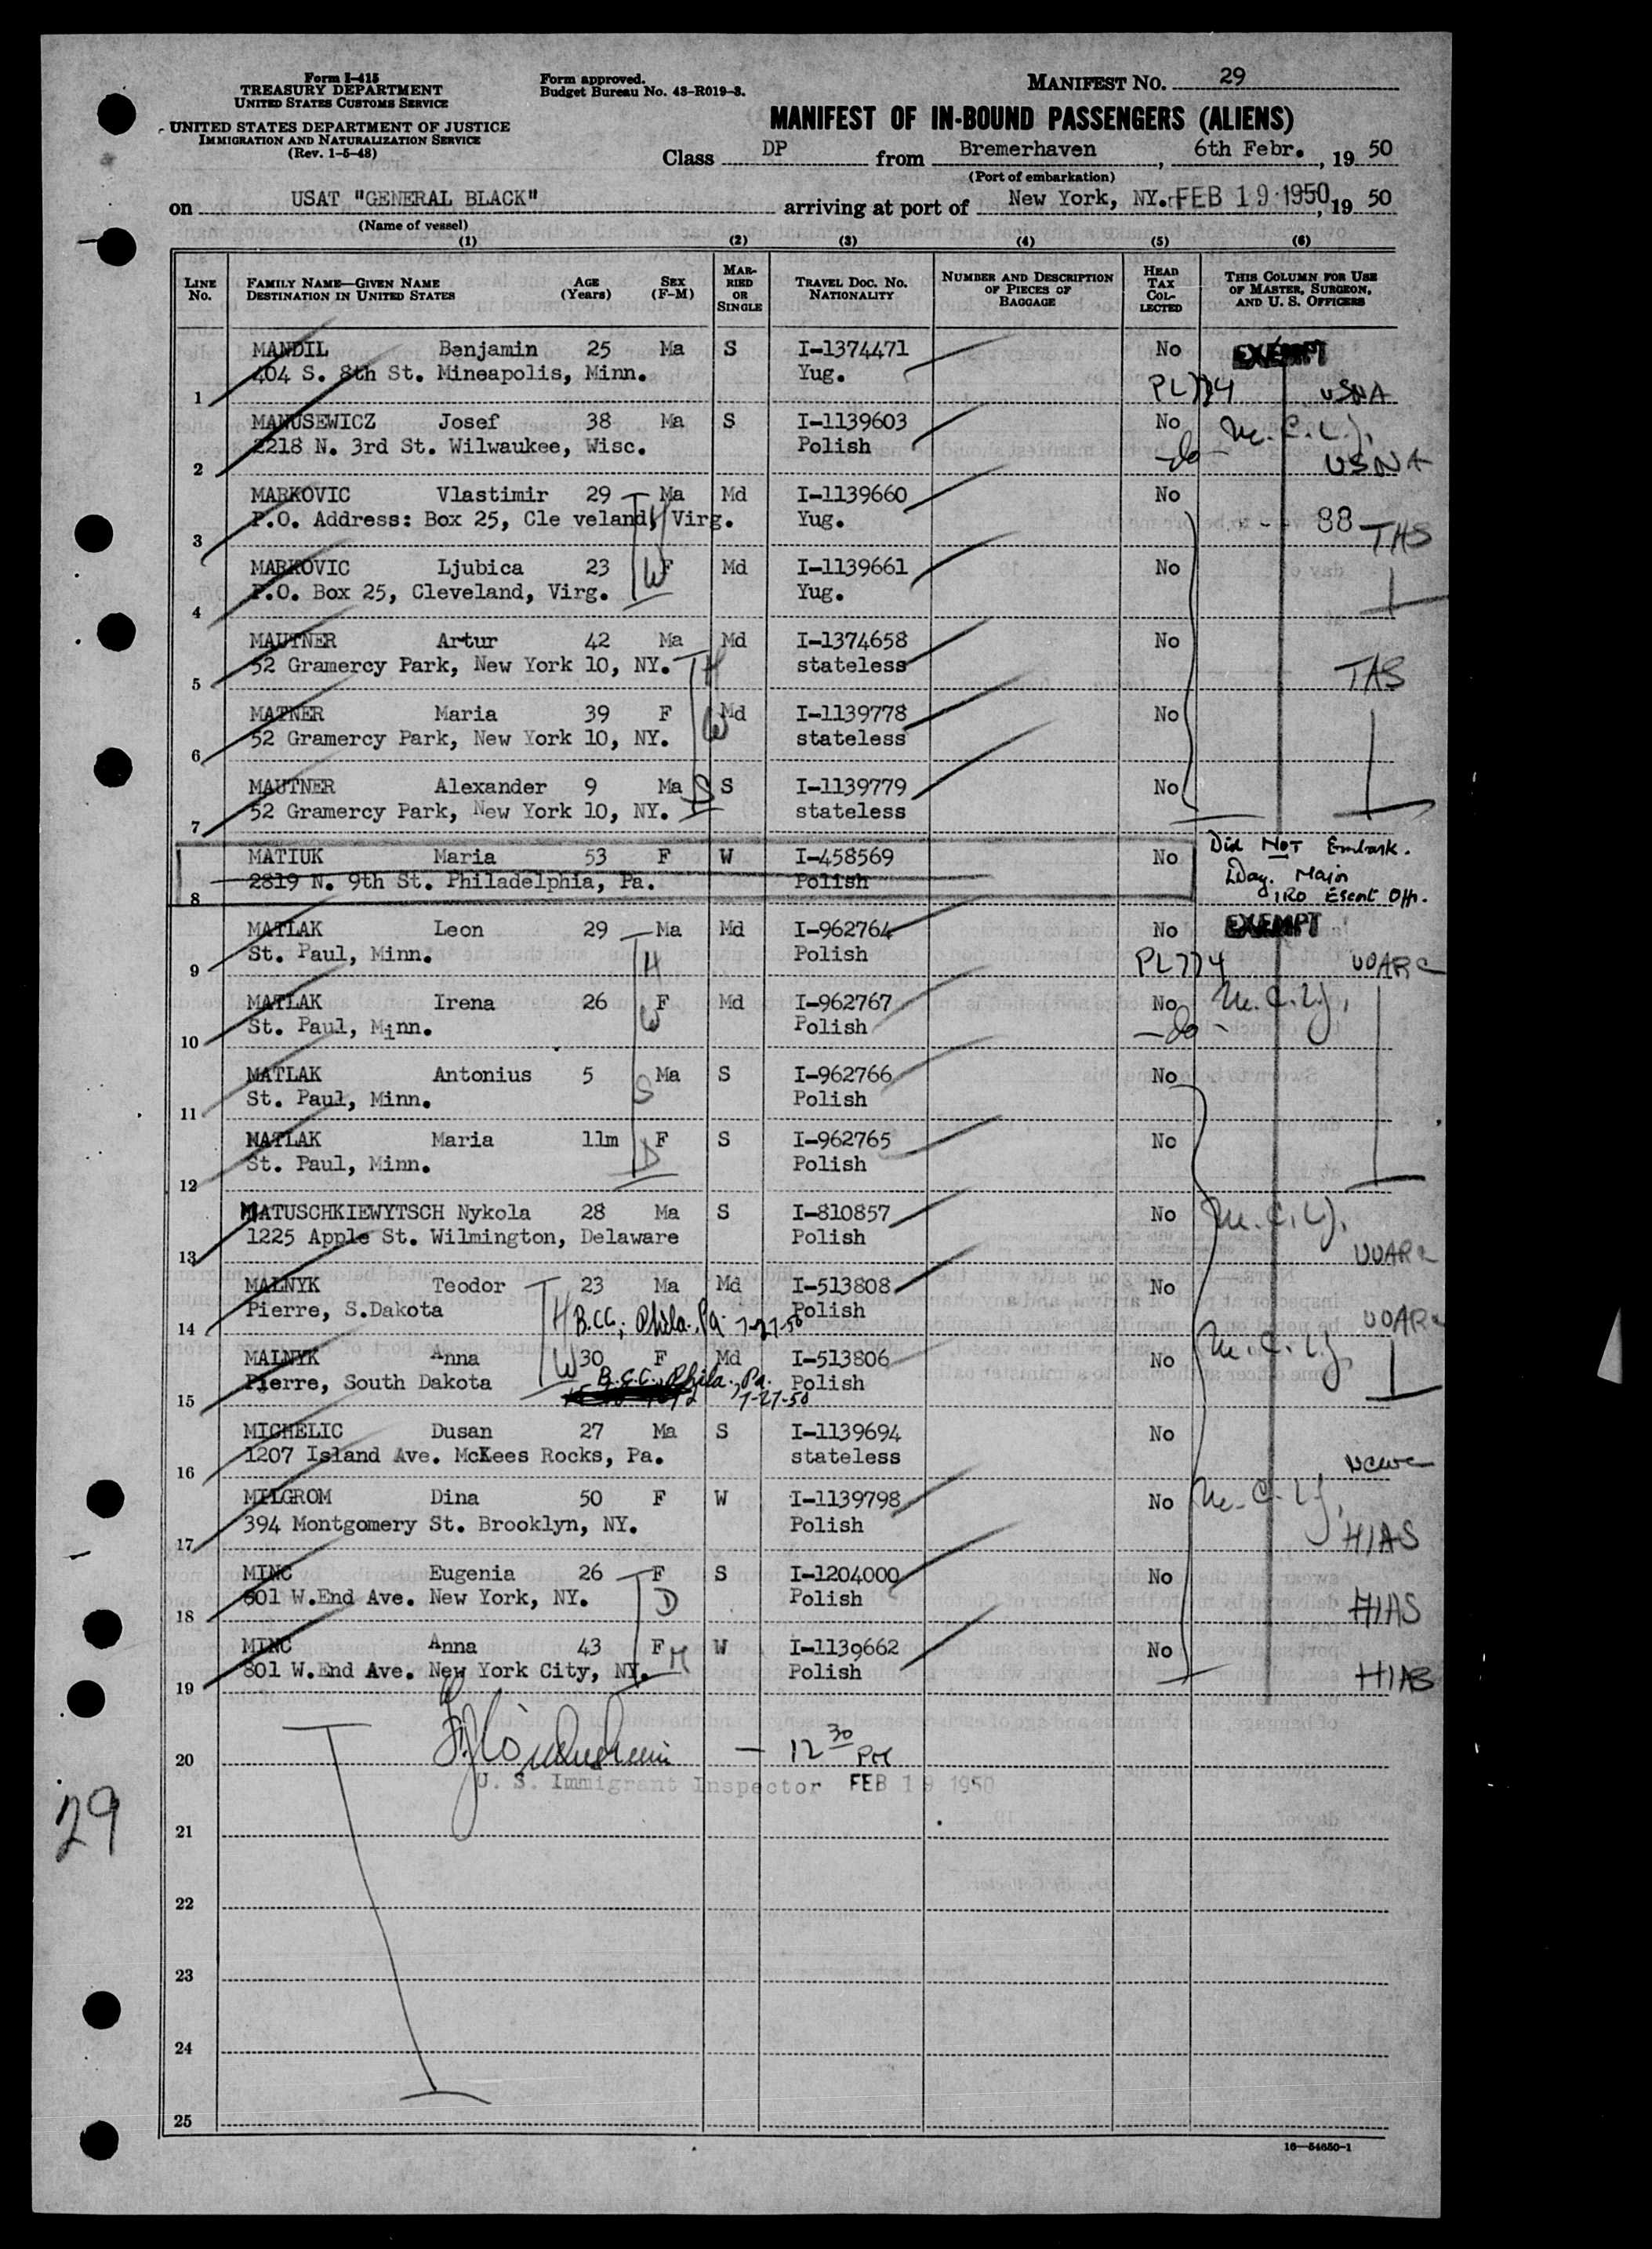 Form I-415
TREASURY DEPARTMENT
UNITED STATES CUSTOMS SERVICE
UNITED STATES DEPARTMENT OF JUSTICE
IMMIGRATION AND NATURALIZATION SERVICE
(Rev. 1-5-48)
Form approved.
Budget Bureau No. 43-R019-3.
MANIFEST NO. 29
MANIFEST OF IN-BOUND PASSENGERS (ALIENS)
Class DP from Bremerhaven, 6th Febr., 19 50
(Port of embarkation)
on USAT "GENERAL BLACK" arriving at port of New York, NY. FEB 19 1950, 19 50
(Name of vessel)
(1) (2) (3) (4) (5) (6)
LINE No. FAMILY NAME—GIVEN NAME DESTINATION IN UNITED STATES AGE (Years) SEX (F-M) MARRIED OR SINGLE TRAVEL DOC. NO. NATIONALITY NUMBER AND DESCRIPTION OF PIECES OF BAGGAGE HEAD TAX COLLECTED THIS COLUMN FOR USE OF MASTER, SURGEON, AND U. S. OFFICERS
MANDIL Benjamin 25 Ma S I-1374471 No EXEMPT
404 S. 8th St. Mineapolis, Minn. Yug.
1 PL774 USNA
MANUSEWICZ Josef 38 Ma S I-1139603 No
2218 N. 3rd St. Wilwaukee, Wisc. Polish -do-
2 USNA
MARKOVIC Vlastimir 29 Ma Md I-1139660 No
P.O. Address: Box 25, Cle veland, Virg. H Yug. 88
3 TAS
MARKOVIC Ljubica 23 W F Md I-1139661 No
P.O. Box 25, Cleveland, Virg. Yug.
4
MAUTNER Artur 42 Ma Md I-1374658 No
52 Gramercy Park, New York 10, NY. H stateless TAS
5
MATNER Maria 39 F W Md I-1139778 No
52 Gramercy Park, New York 10, NY. stateless
6
MAUTNER Alexander 9 Ma S S I-1139779 No
52 Gramercy Park, New York 10, NY. stateless
7
MATIUK Maria 53 F W I-458569 No Did NOT Embark.
2819 N. 9th St. Philadelphia, Pa. Polish
8 IRO Escort Off.
MATLAK Leon 29 Ma Md I-962764 No EXEMPT
St. Paul, Minn. H Polish
9 PL774
MATLAK Irena 26 F Md I-962767 No
St. Paul, Minn. W Polish -do-
10
MATLAK Antonius 5 Ma S I-962766 No
St. Paul, Minn. S Polish
11
MATLAK Maria 11m F S I-962765 No
St. Paul, Minn. D Polish
12
MATUSCHKIEWYTSCH Nykola 28 Ma S I-810857 No
1225 Apple St. Wilmington, Delaware Polish
13
MALNYK Teodor 23 Ma Md I-513808 No
Pierre, S.Dakota H B.CC; Phila., Pa. 7-27-50 Polish
14
MALNYK Anna W 30 F Md I-513806 No
Pierre, South Dakota B.C.C., Phila., Pa. 7-27-50 Polish
15
MICHELIC Dusan 27 Ma S I-1139694 No
1207 Island Ave. McKees Rocks, Pa. stateless
16 NCWC
MILGROM Dina 50 F W I-1139798 No
394 Montgomery St. Brooklyn, NY. Polish
17 HIAS
MINC Eugenia 26 F S I-1204000 No
801 W.End Ave. New York, NY. D Polish
18 HIAS
MINC Anna 43 F M W I-1139662 No
801 W.End Ave. New York City, NY. Polish
19 HIAS
20 — 12 30 PM
U. S. Immigrant Inspector FEB 19 1950
21
29
22
23
24
25
16—54650-1